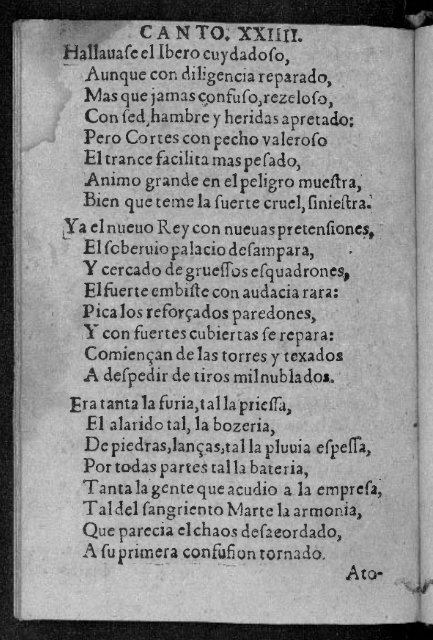 CANTO. XXIIII.
Hallauase el Ibero cuydadoso,
Aunque con diligencia reparado,
Mas que jamas confuso, rezeloso,
Con sed, hambre y heridas apretado:
Pero Cortes con pecho valeroso
El trance facilita mas pesado,
Animo grande en el peligro muestra,
Bien que teme la suerte cruel, siniestra.
Ya el nueuo Rey con nueuas pretensiones,
El soberuio palacio desampara,
Y cercado de gruessos esquadrones,
El fuerte embiste con audacia rara:
Pica los reforçados paredones,
Y con fuertes cubiertas se repara:
Comiençan de las torres y texados
A despedir de tiros mil nublados.
Era tanta la furia, tal la priessa,
El alarido tal, la bozeria,
De piedras, lanças, tal la pluuia espessa,
Por todas partes tal la bateria,
Tanta la gente que acudio a la empresa,
Tal del sangriento Marte la armonia,
Que parecia el chaos desacordado,
A su primera confusion tornado.
Ato-